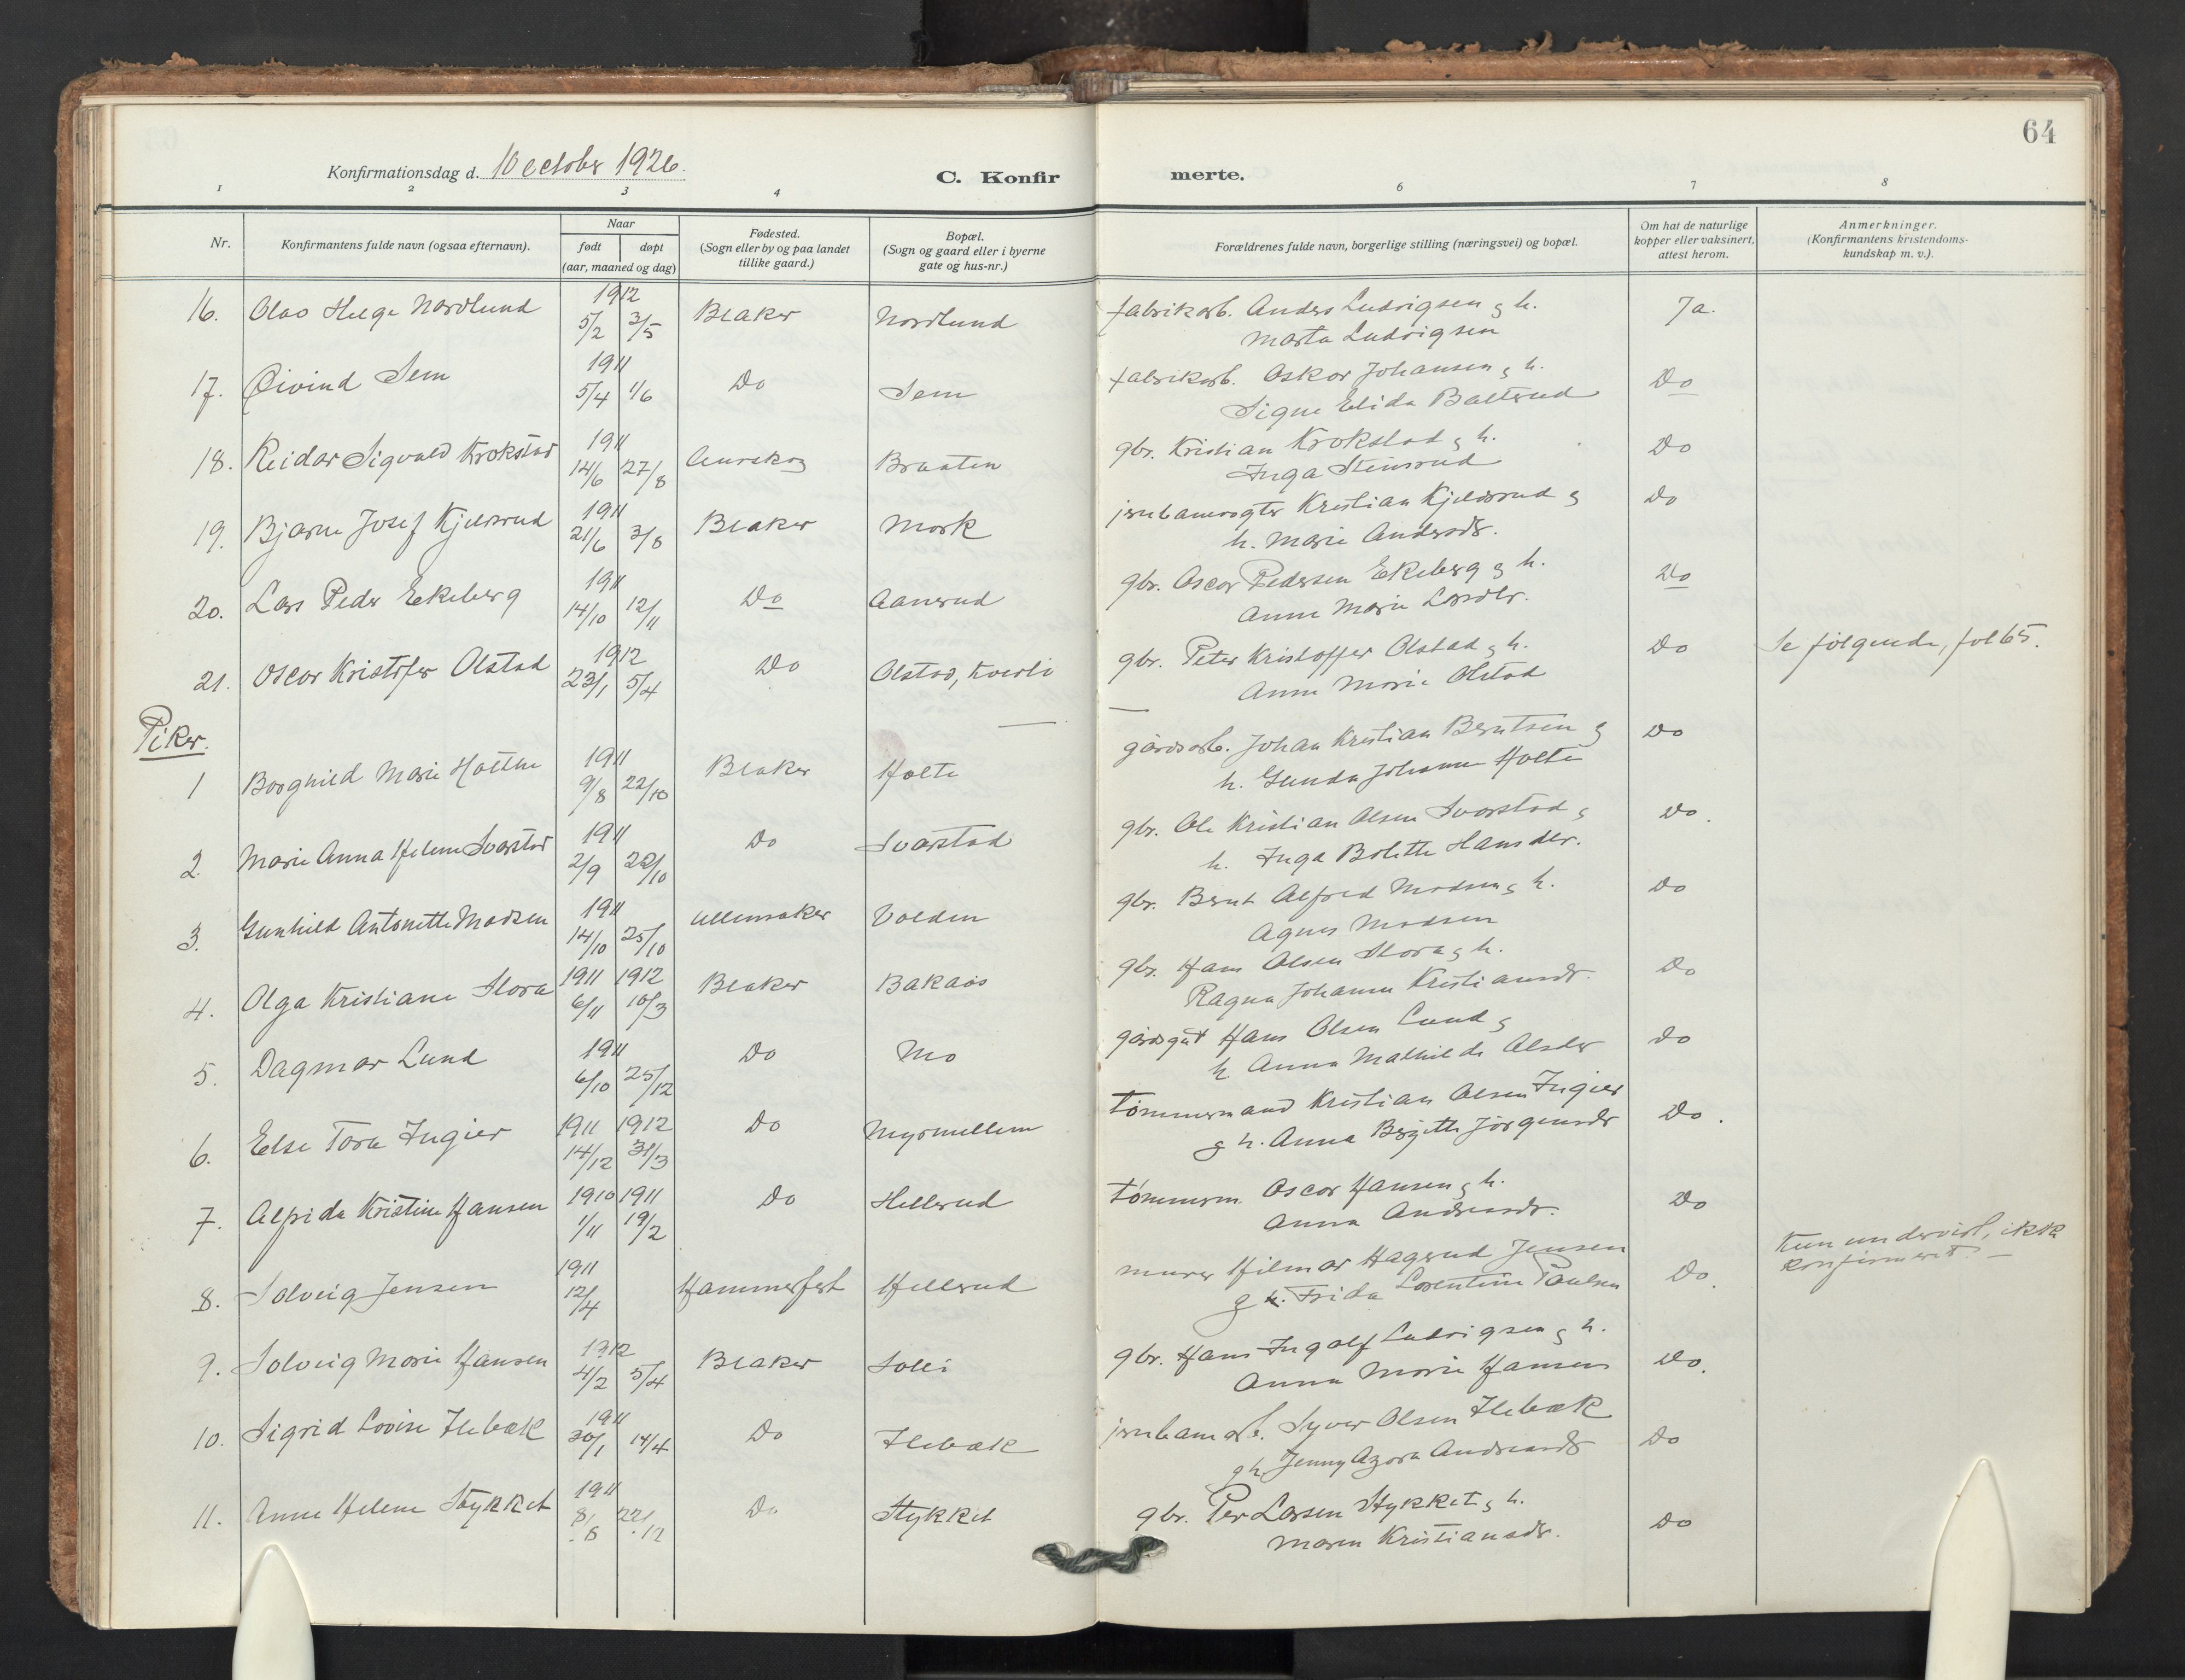 64
Konfirmationsdag d. 10 october 1926.
C. Konfirmerte.
1 2 3 4 6 7 8
Nr. Konfirmantens fulde navn (ogsaa efternavn). Naar født døpt (aar, maaned og dag) Fødested. (Sogn eller by og paa landet tillike gaard.) Bopæl. (Sogn og gaard eller i byerne gate og hus-nr.) Forældrenes fulde navn, borgerlige stilling (næringsvei) og bopæl. Om hat de naturlige kopper eller vaksinert, attest herom. Anmerkninger. (Konfirmantens kristendoms-kundskap m. v.).
16. Olav Helge Nordlund 1912 5/2 3/5 Blaker Nordlund fabrikarb. Anders Ludvigsen g h. Ja.
Marta Ludvigsen
17. Øivind Sem 1911 5/4 1/6 Do Sem fabrikarb. Oskar Johansen g h. Do
Signe Elida Balterud
18. Reidar Sigvald Krokstad 1911 14/6 27/8 Aurskog Braaten gbr. Kristian Krokstad g h. Do
Inga Steinsrud
19. Bjarne Josef Kjelsrud 1911 21/6 3/8 Blaker Mork jernbanevogter Kristian Kjelsrud g Do
h. Marie Andersdr.
20. Lars Peder Ekeberg 1911 14/10 12/11 Do Aanerud gbr. Oscar Pedersen Ekeberg g h. Do
Anne Marie Larsdtr.
21. Oscar Kristofer Olstad 1912 23/1 5/4 Do Olstad, Kverli gbr. Peter Kristoffer Olstad g h. Do Se følgende, fol 65.
Anne Marie Olstad
Piker.
1 Borghild Marie Holthe 1911 9/8 22/10 Blaker Holte gårdsarb. Johan Kristian Berntsen g Do
h. Gunda Johanne Holte
2. Marie Anna Helene Svarstad 1911 2/9 22/10 Do Svarstad gbr. Ole Kristian Olsen Svarstad g Do.
h. Inga Bolette Hansdtr.
3. Gunhild Antonette Madsen 1911 14/10 25/10 Ullensaker Volden gbr. Bernt Alfred Madsen g h. Do
Agnes Madsen
4. Olga Kristiane Slora 1911 1912 6/11 10/3 Blaker Bakaas gbr. Hans Olsen Slora g h. Do
Ragna Johanne Kristiansdr.
5. Dagmar Lund 1911 6/10 25/12 Do Mo gårdsgut Hans Olsen Lund g Do
h. Anna Mathilde Olsdtr
6. Else Tora Ingier 1911 1912 14/12 31/3 Do Myrmellem Tømmermand Kristian Olsen Ingier Do.
g h. Anna Bergitte Jørgensdr
7. Alfrida Kristine Hansen 1910 1911 1/11 19/2 Do Hellerud Tømmerm. Oscar Hansen g h. Do
Anna Andreasdr.
8. Solveig Jensen 1911 12/4 Hammerfest Hellerud murer Hilmar Hagerud Jensen Do. Kun undervist, ikke
g h. Frida Lorentine Paulsen konfirmert. –
9. Solveig Marie Hansen 1912 4/2 5/4 Blaker Solli gbr. Hans Ingolf Ludvigsen g h. Do.
Anna Marie Hansen
10. Sigrid Lovise Ilebæk 1911 30/1 14/4 Do Ilebæk jernbanearb. Syver Olsen Ilebæk Do
g h. Jenny Azora Andreasdr
11. Anne Helene Stykket 1911 8/8 22/12 Do Stykket gbr. Per Larsen Stykket g h. Do
Maren Kristiansdr.